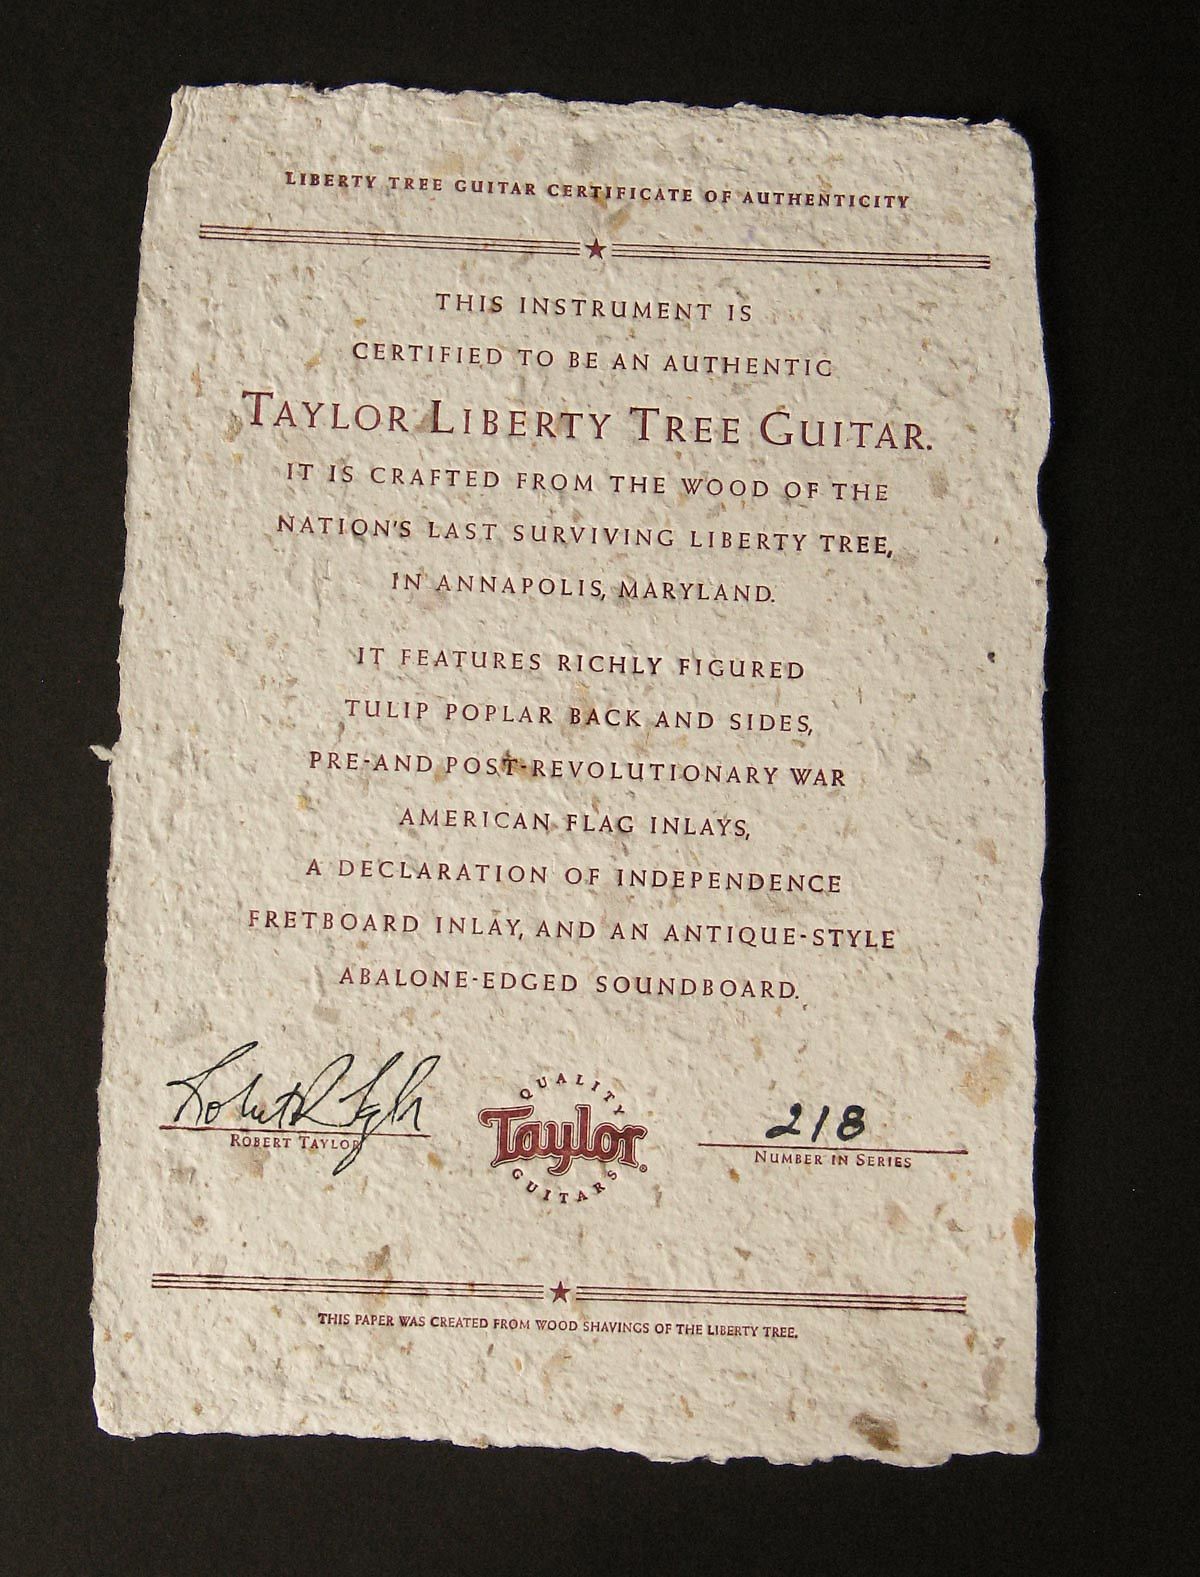 LIBERTY TREE GUITAR CERTIFICATE OF AUTHENTICITY
THIS INSTRUMENT IS
CERTIFIED TO BE AN AUTHENTIC
TAYLOR LIBERTY TREE GUITAR.
IT IS CRAFTED FROM THE WOOD OF THE
NATION'S LAST SURVIVING LIBERTY TREE,
IN ANNAPOLIS, MARYLAND.
IT FEATURES RICHLY FIGURED
TULIP POPLAR BACK AND SIDES,
PRE-AND POST-REVOLUTIONARY WAR
AMERICAN FLAG INLAYS,
A DECLARATION OF INDEPENDENCE
FRETBOARD INLAY, AND AN ANTIQUE-STYLE
ABALONE-EDGED SOUNDBOARD.
Robert Taylor
ROBERT TAYLOR
QUALITY
Taylor®
GUITARS
218
NUMBER IN SERIES
THIS PAPER WAS CREATED FROM WOOD SHAVINGS OF THE LIBERTY TREE.